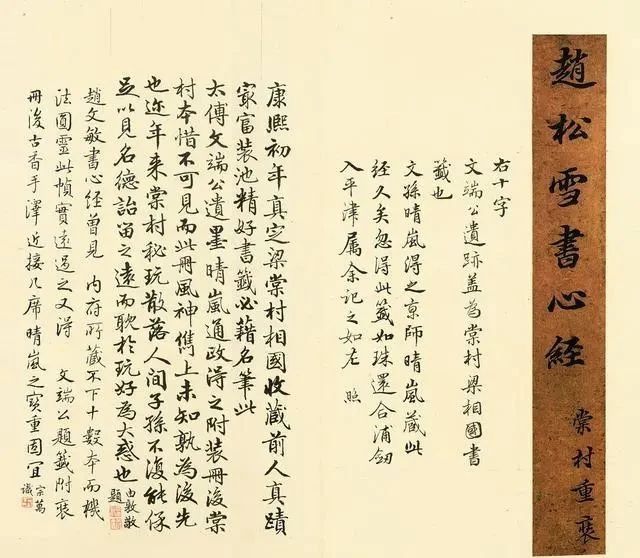 趙松雪書心經
棠村重裝
右十字
文端公遺跡蓋為棠村梁相國書
籤也
文孫晴嵐得之京師晴嵐藏此
經久矣忽得此籤如珠還合浦劒
入平津属余記之如左 照
康熙初年真定梁棠村相國收藏前人真蹟
冣富裝池精好書籤必藉名筆此
太傅文端公遺墨晴嵐通政得之附裝冊後棠
村本惜不可見而此冊風神儁上未知孰為後先
也近年来棠村秘玩散落人間子孫不復能保
足以見名德詒留之遠而耽於玩好為大惑也
由敦敬
題
趙文敏書心經曾見 内府所藏不下十數本而機
法圓靈此幀實遠過之又得 文端公題籤附裝
冊後古香手澤近接几席晴嵐之寶重固宜
宗萬
識